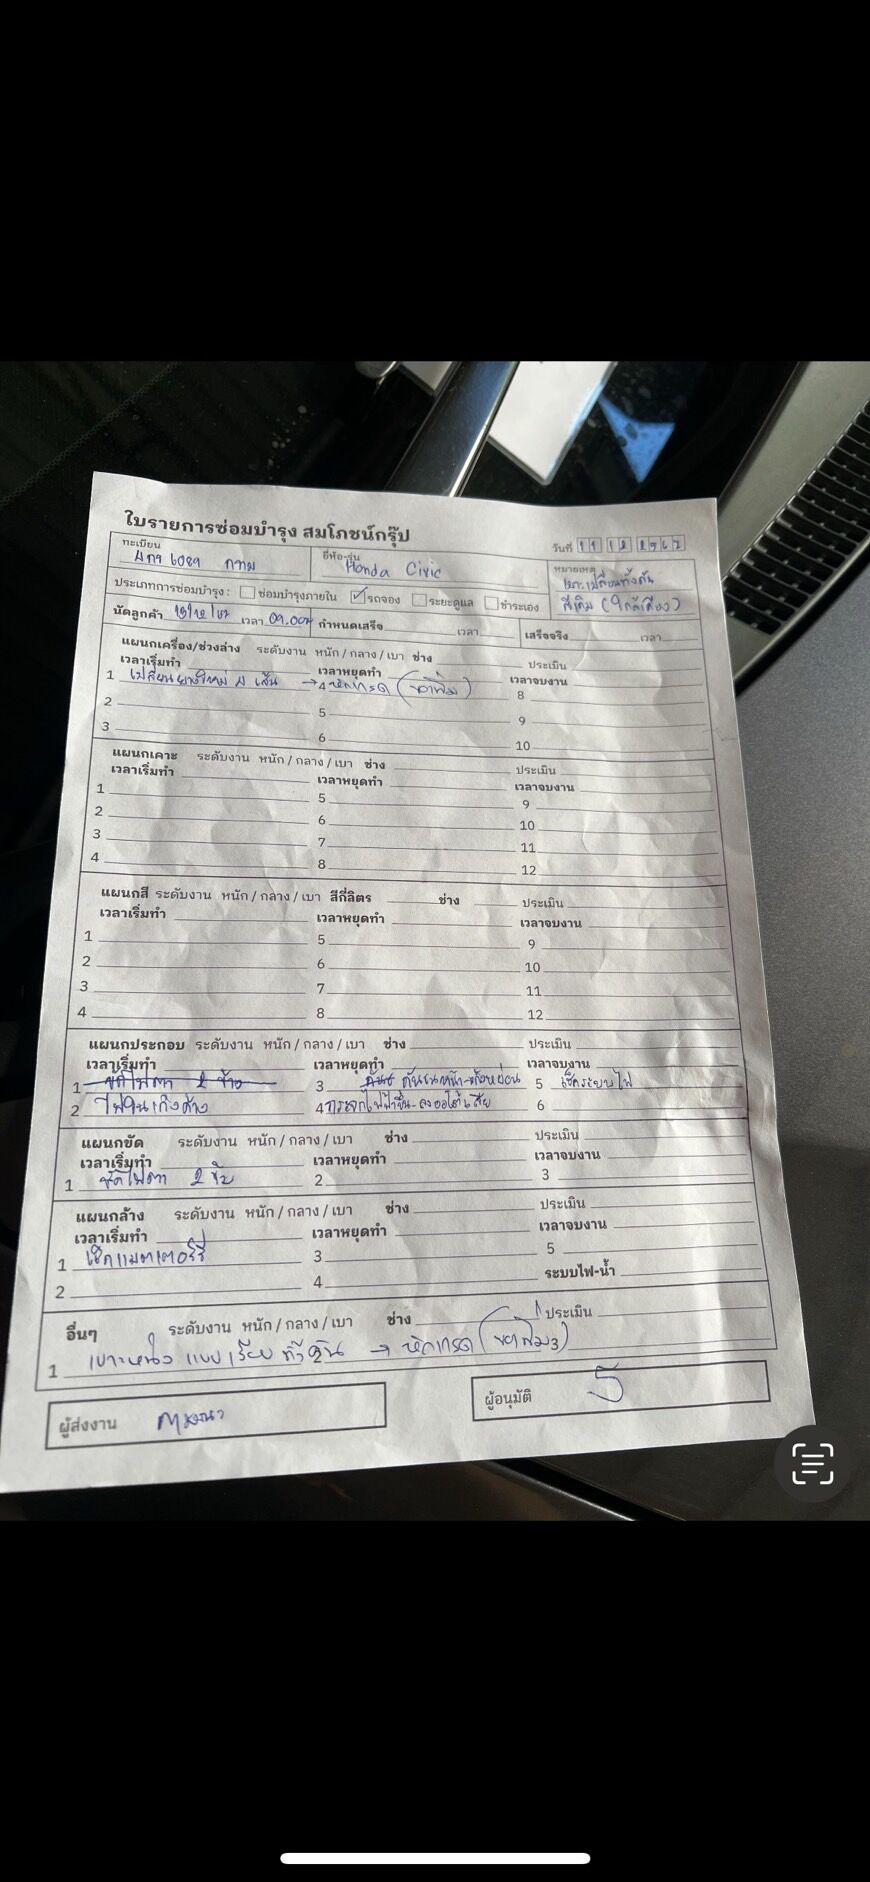 ใบรายการซ่อมบำรุง สมโภชน์กรุ๊ป
วันที่ 11 12 2567
ทะเบียน 6089 กทม ยี่ห้อ-รุ่น Honda Civic หมายเหตุ
เบาะเปลี่ยนทั้งคัน
สีเดิม (ใกล้เคียง)
ประเภทการซ่อมบำรุง: ซ่อมบำรุงภายใน ✓ รถจอง ระยะดูแล ชำระเอง
นัดลูกค้า เวลา 09.00 กำหนดเสร็จ เวลา เสร็จจริง เวลา
แผนกเครื่อง/ช่วงล่าง ระดับงาน หนัก / กลาง / เบา ช่าง ประเมิน
เวลาเริ่มทำ เวลาหยุดทำ เวลาจบงาน
1 เปลี่ยนยางใหม่ 4 เส้น → 4 หักเกรด 8
2 5 9
3 6 10
แผนกเคาะ ระดับงาน หนัก / กลาง / เบา ช่าง ประเมิน
เวลาเริ่มทำ เวลาหยุดทำ เวลาจบงาน
1 5 9
2 6 10
3 7 11
4 8 12
แผนกสี ระดับงาน หนัก / กลาง / เบา สีกี่ลิตร ช่าง ประเมิน
เวลาเริ่มทำ เวลาหยุดทำ เวลาจบงาน
1 5 9
2 6 10
3 7 11
4 8 12
แผนกประกอบ ระดับงาน หนัก / กลาง / เบา ช่าง ประเมิน
เวลาเริ่มทำ เวลาหยุดทำ เวลาจบงาน
1 ขัดไฟตา 2 ข้าง 3 กันชนหน้า-หลังหย่อน 5 เช็คระบบไฟ
2 ไฟในเก๋งค้าง 4 กระจกไฟฟ้าขึ้น-ลงออโต้เสีย 6
แผนกขัด ระดับงาน หนัก / กลาง / เบา ช่าง ประเมิน
เวลาเริ่มทำ เวลาหยุดทำ เวลาจบงาน
1 ขัดไฟตา 2 2 3
แผนกล้าง ระดับงาน หนัก / กลาง / เบา ช่าง ประเมิน
เวลาเริ่มทำ เวลาหยุดทำ เวลาจบงาน
1 เช็คแบตเตอร์รี่ 3 5
2 4 ระบบไฟ-น้ำ
อื่นๆ ระดับงาน หนัก / กลาง / เบา ช่าง ประเมิน
1 เบาะหนัง แบบเรียบ ทั้งคัน → หักเกรด 2 3
ผู้ส่งงาน ผู้อนุมัติ